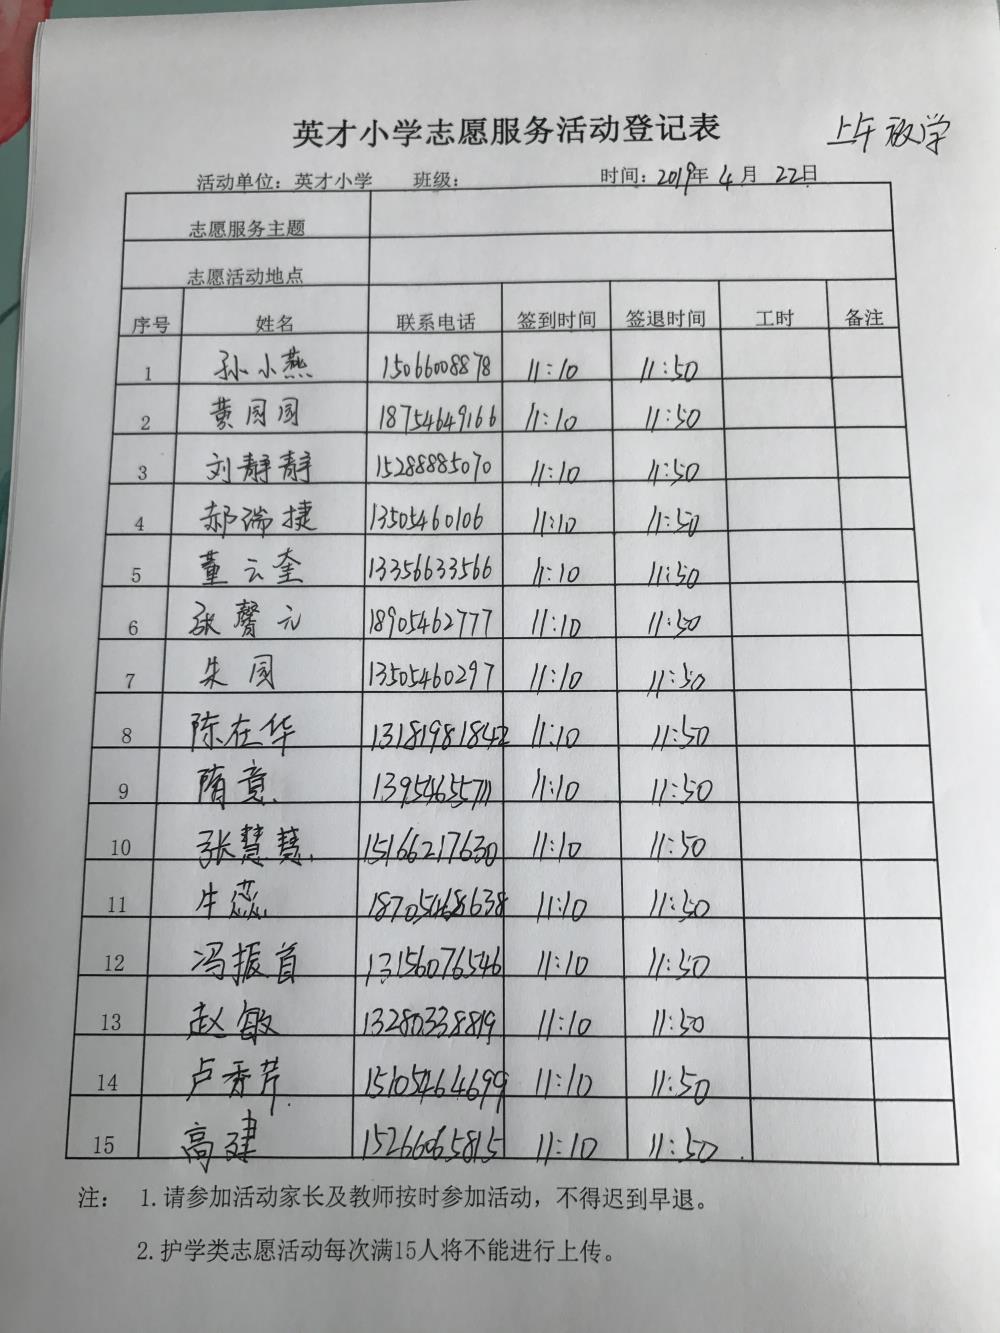 英才小学志愿服务活动登记表 上午放学
活动单位：英才小学 班级： 时间：2019年4月22日
志愿服务主题
志愿活动地点
序号 姓名 联系电话 签到时间 签退时间 工时 备注
1 孙小燕 15066008878 11:10 11:50
2 黄园园 18754649166 11:10 11:50
3 刘静静 15288885070 11:10 11:50
4 郝瑞捷 13505460106 11:10 11:50
5 董云奎 13356633566 11:10 11:50
6 张馨元 18905462777 11:10 11:50
7 朱园 13505460297 11:10 11:50
8 陈在华 13181981842 11:10 11:50
9 隋竟 13954655711 11:10 11:50
10 张慧慧 15166217630 11:10 11:50
11 牛蕊 18705468638 11:10 11:50
12 冯振首 13156076546 11:10 11:50
13 赵敏 13280338819 11:10 11:50
14 卢香芹 15105464699 11:10 11:50
15 高建 15266065815 11:10 11:50
注： 1.请参加活动家长及教师按时参加活动，不得迟到早退。
2.护学类志愿活动每次满15人将不能进行上传。